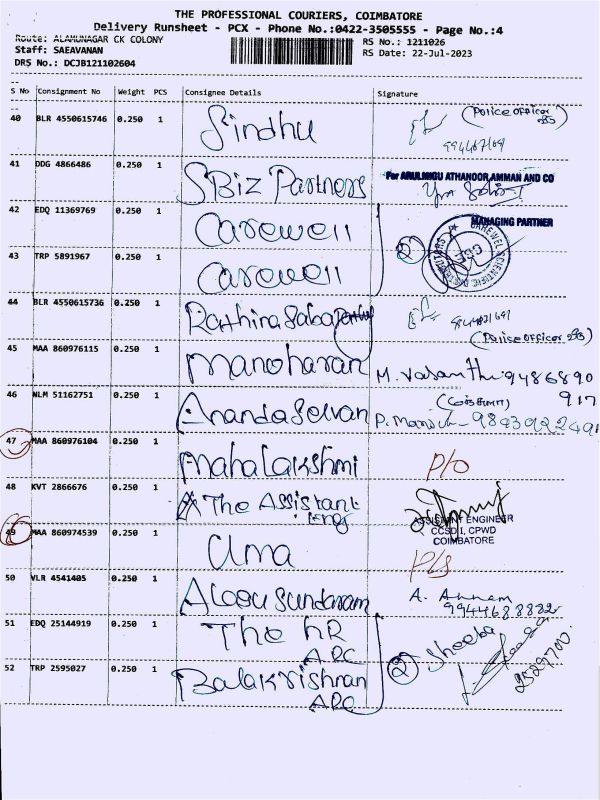 THE PROFESSIONAL COURIERS, COIMBATORE
Delivery Runsheet - PCX - Phone No.:0422-3505555 - Page No.:4
Route: ALAMUNAGAR CK COLONY
RS No.: 1211026
Staff: SAEAVANAN
RS Date: 22-Jul-2023
DRS No.: DCJB121102604
S No Consignment No Weight PCS Consignee Details Signature
40 BLR 4550615746 0.250 1 Sindhu (Police officer
41 DDG 4866486 0.250 1 SBiz Partners For ARULMIGU ATHANOOR AMMAN AND CO
MANAGING PARTNER
42 EDQ 11369769 0.250 1 Carewell
43 TRP 5891967 0.250 1 Carewell 2
44 BLR 4550615736 0.250 1 Rathinasabapathy
(Police officer
45 MAA 860976115 0.250 1 Manoharan M. Vasanthi 9486890
917
46 NLM 51162751 0.250 1 Anandaselvan
47 MAA 860976104 0.250 1 Mahalakshmi P/o
48 KVT 2866676 0.250 1 The Assistant
Eng
ASSISTANT ENGINEER
CCSD I, CPWD
COIMBATORE
49 MAA 860974539 0.250 1 Uma P/s
50 VLR 4541405 0.250 1 Alagu Sundaram A. Annam
9944688882
51 EDQ 25144919 0.250 1 The HR
APC
52 TRP 2595027 0.250 1 Balakrishnan 2 Sheeba
APC